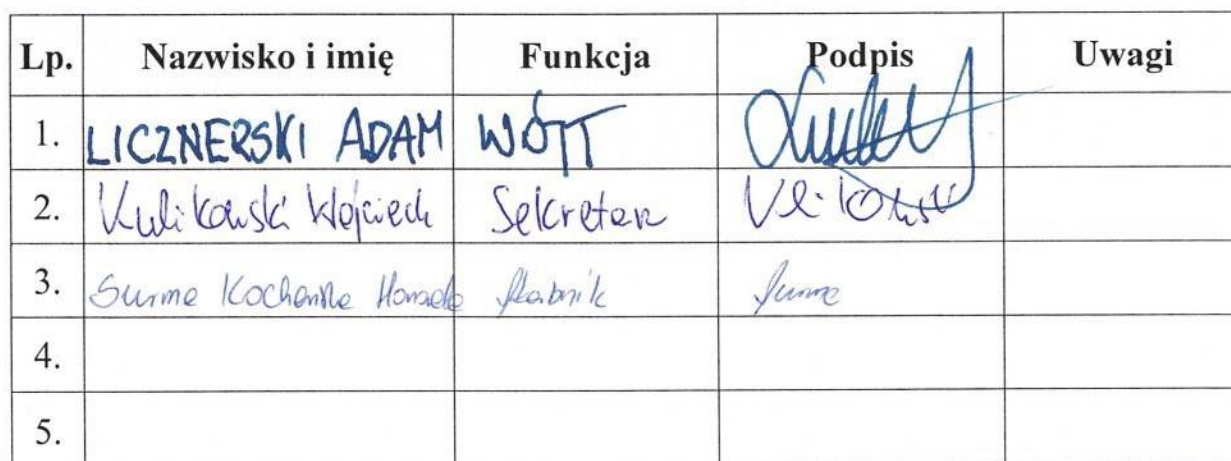 Lp. Nazwisko i imię Funkcja Podpis Uwagi
1. LICZNERSKI ADAM WÓJT
2. Kulikowski Wojciech Sekretarz
3. Surma Kochańska Skarbnik Surma
4.
5.